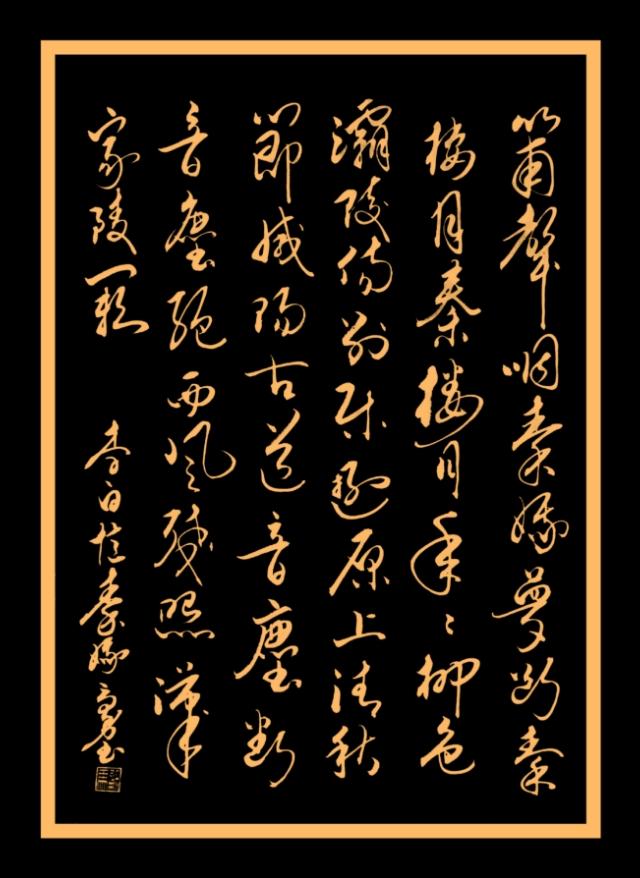 簫聲咽秦娥夢斷秦
樓月秦樓月年々柳色
灞陵傷別樂遊原上清秋
節咸陽古道音塵斷
音塵絕西風殘照漢
家陵闕
李白憶秦娥